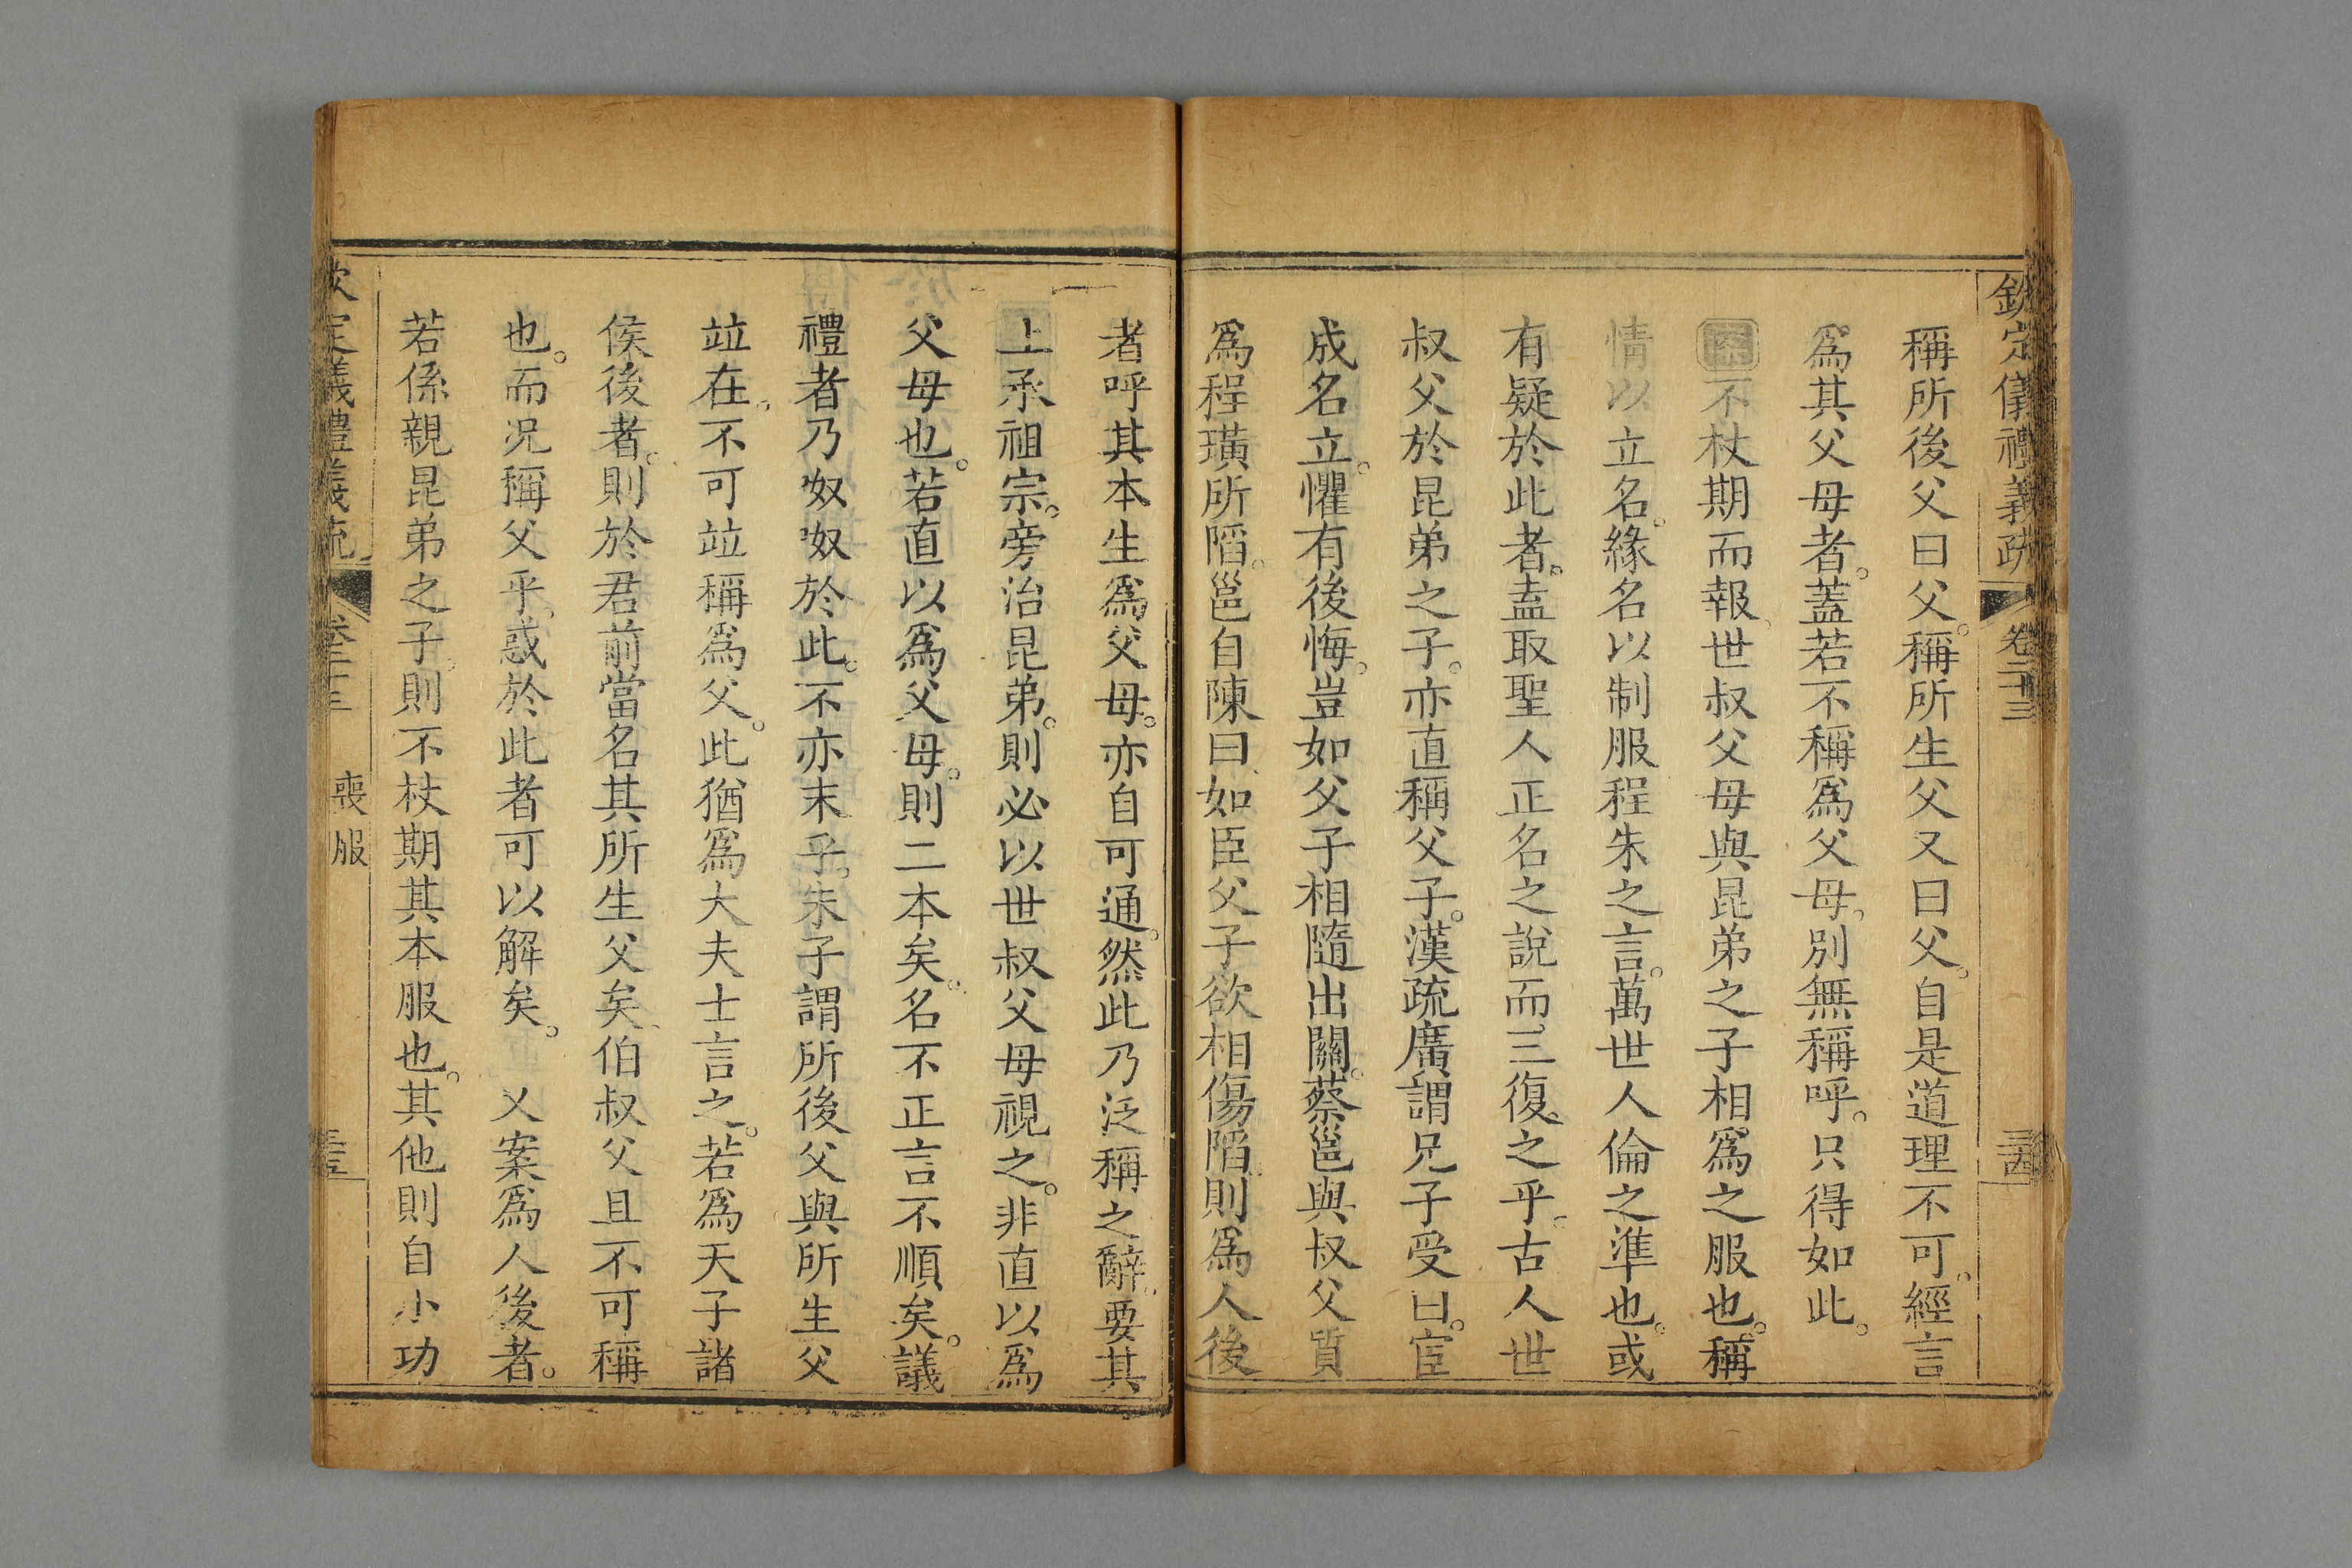 欽定儀禮義疏 卷二十三 三百
稱所後父曰父。稱所生父又曰父。自是道理不可。經言
爲其父母者。蓋若不稱爲父母。別無稱呼。只得如此。
案不杖期而報世叔父母與昆弟之子相爲之服也。稱
情以立名。緣名以制服程朱之言。萬世人倫之準也。或
有疑於此者。盍取聖人正名之說而三復之乎。古人世
叔父於昆弟之子。亦直稱父子。漢疏廣謂兄子受曰。宦
成名立。懼有後悔。豈如父子相隨出關。蔡邕與叔父質
爲程璜所陷。邕自陳曰、如臣父子欲相傷陷。則爲人後
者呼其本生爲父母。亦自可通。然此乃泛稱之辭。要其
上承祖宗。旁治昆弟。則必以世叔父母視之。非直以爲
父母也。若直以爲父母。則二本矣。名不正言不順矣。議
禮者乃呶呶於此。不亦末乎。朱子謂所後父與所生父
竝在。不可竝稱爲父。此猶爲大夫士言之。若爲天子諸
侯後者。則於君前當名其所生父矣、伯叔父且不可稱
也。而况稱父乎。惑於此者可以解矣。 又案爲人後者。
若係親昆弟之子。則不杖期其本服也。其他則自小功
欽定儀禮義疏 卷二十三 喪服